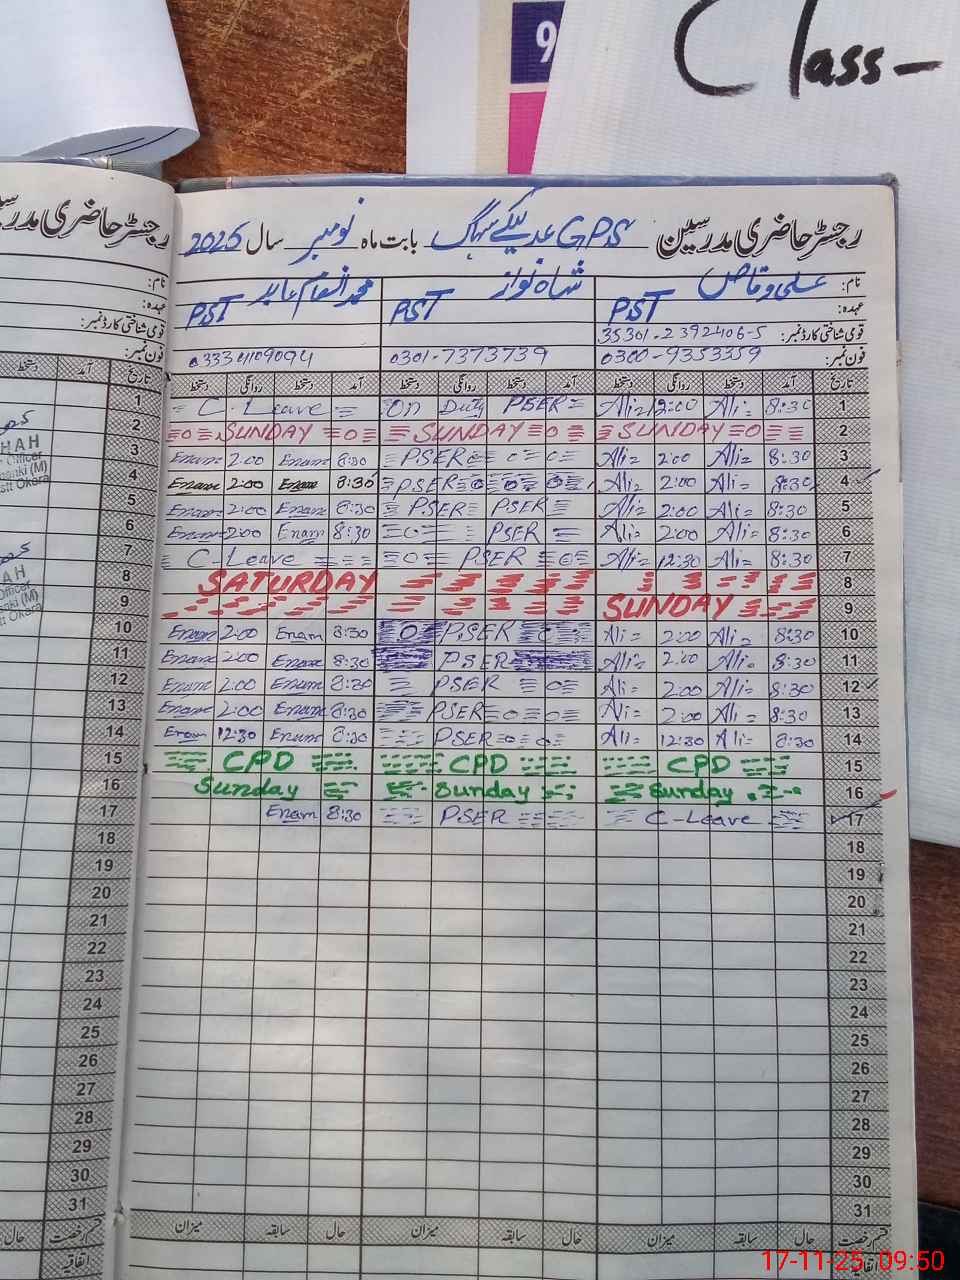 9
Class-
رجسٹر حاضری مدرسین GPS بابت ماہ نومبر سال 2025
نام: علی وقاص شاہ نواز محمد انعام عابد
عہدہ: PST PST PST
قومی شناختی کارڈ نمبر: 35301-2392406-5
فون نمبر: 0300-9353359 0301-7373739 03334109094
تاریخ آمد دستخط روانگی دستخط آمد دستخط روانگی دستخط آمد دستخط روانگی دستخط
1 8:30 Ali 12:00 Ali On Duty PSER C. Leave
2 SUNDAY SUNDAY SUNDAY
3 8:30 Ali 2:00 Ali PSER 8:30 Enam 2:00 Enam
4 8:30 Ali 2:00 Ali PSER 8:30 Enam 2:00 Enam
5 8:30 Ali 2:00 Ali PSER PSER 8:30 Enam 2:00 Enam
6 8:30 Ali 2:00 Ali PSER 8:30 Enam 2:00 Enam
7 8:30 Ali 12:30 Ali PSER C-Leave
8 SATURDAY
9 SUNDAY
10 8:30 Ali 2:00 Ali PSER 8:30 Enam 2:00 Enam
11 8:30 Ali 2:00 Ali PSER 8:30 Enam 2:00 Enam
12 8:30 Ali 2:00 Ali PSER 8:30 Enam 2:00 Enam
13 8:30 Ali 2:00 Ali PSER 8:30 Enam 2:00 Enam
14 8:30 Ali 12:30 Ali PSER 8:30 Enam 12:30 Enam
15 CPD CPD CPD
16 Sunday Sunday Sunday
17 C-Leave PSER 8:30 Enam
18
19
20
21
22
23
24
25
26
27
28
29
30
31
قسم رخصت حال سابقہ میزان حال سابقہ میزان حال سابقہ میزان
اتفاقیہ
رجسٹر حاضری مدرسین
نام:
عہدہ:
قومی شناختی کارڈ نمبر:
فون نمبر:
تاریخ آمد دستخط
1
2
3
4
5
6
7
8
9
10
11
12
13
14
15
16
17
18
19
20
21
22
23
24
25
26
27
28
29
30
31
قسم رخصت حال
اتفاقیہ
17-11-25, 09:50